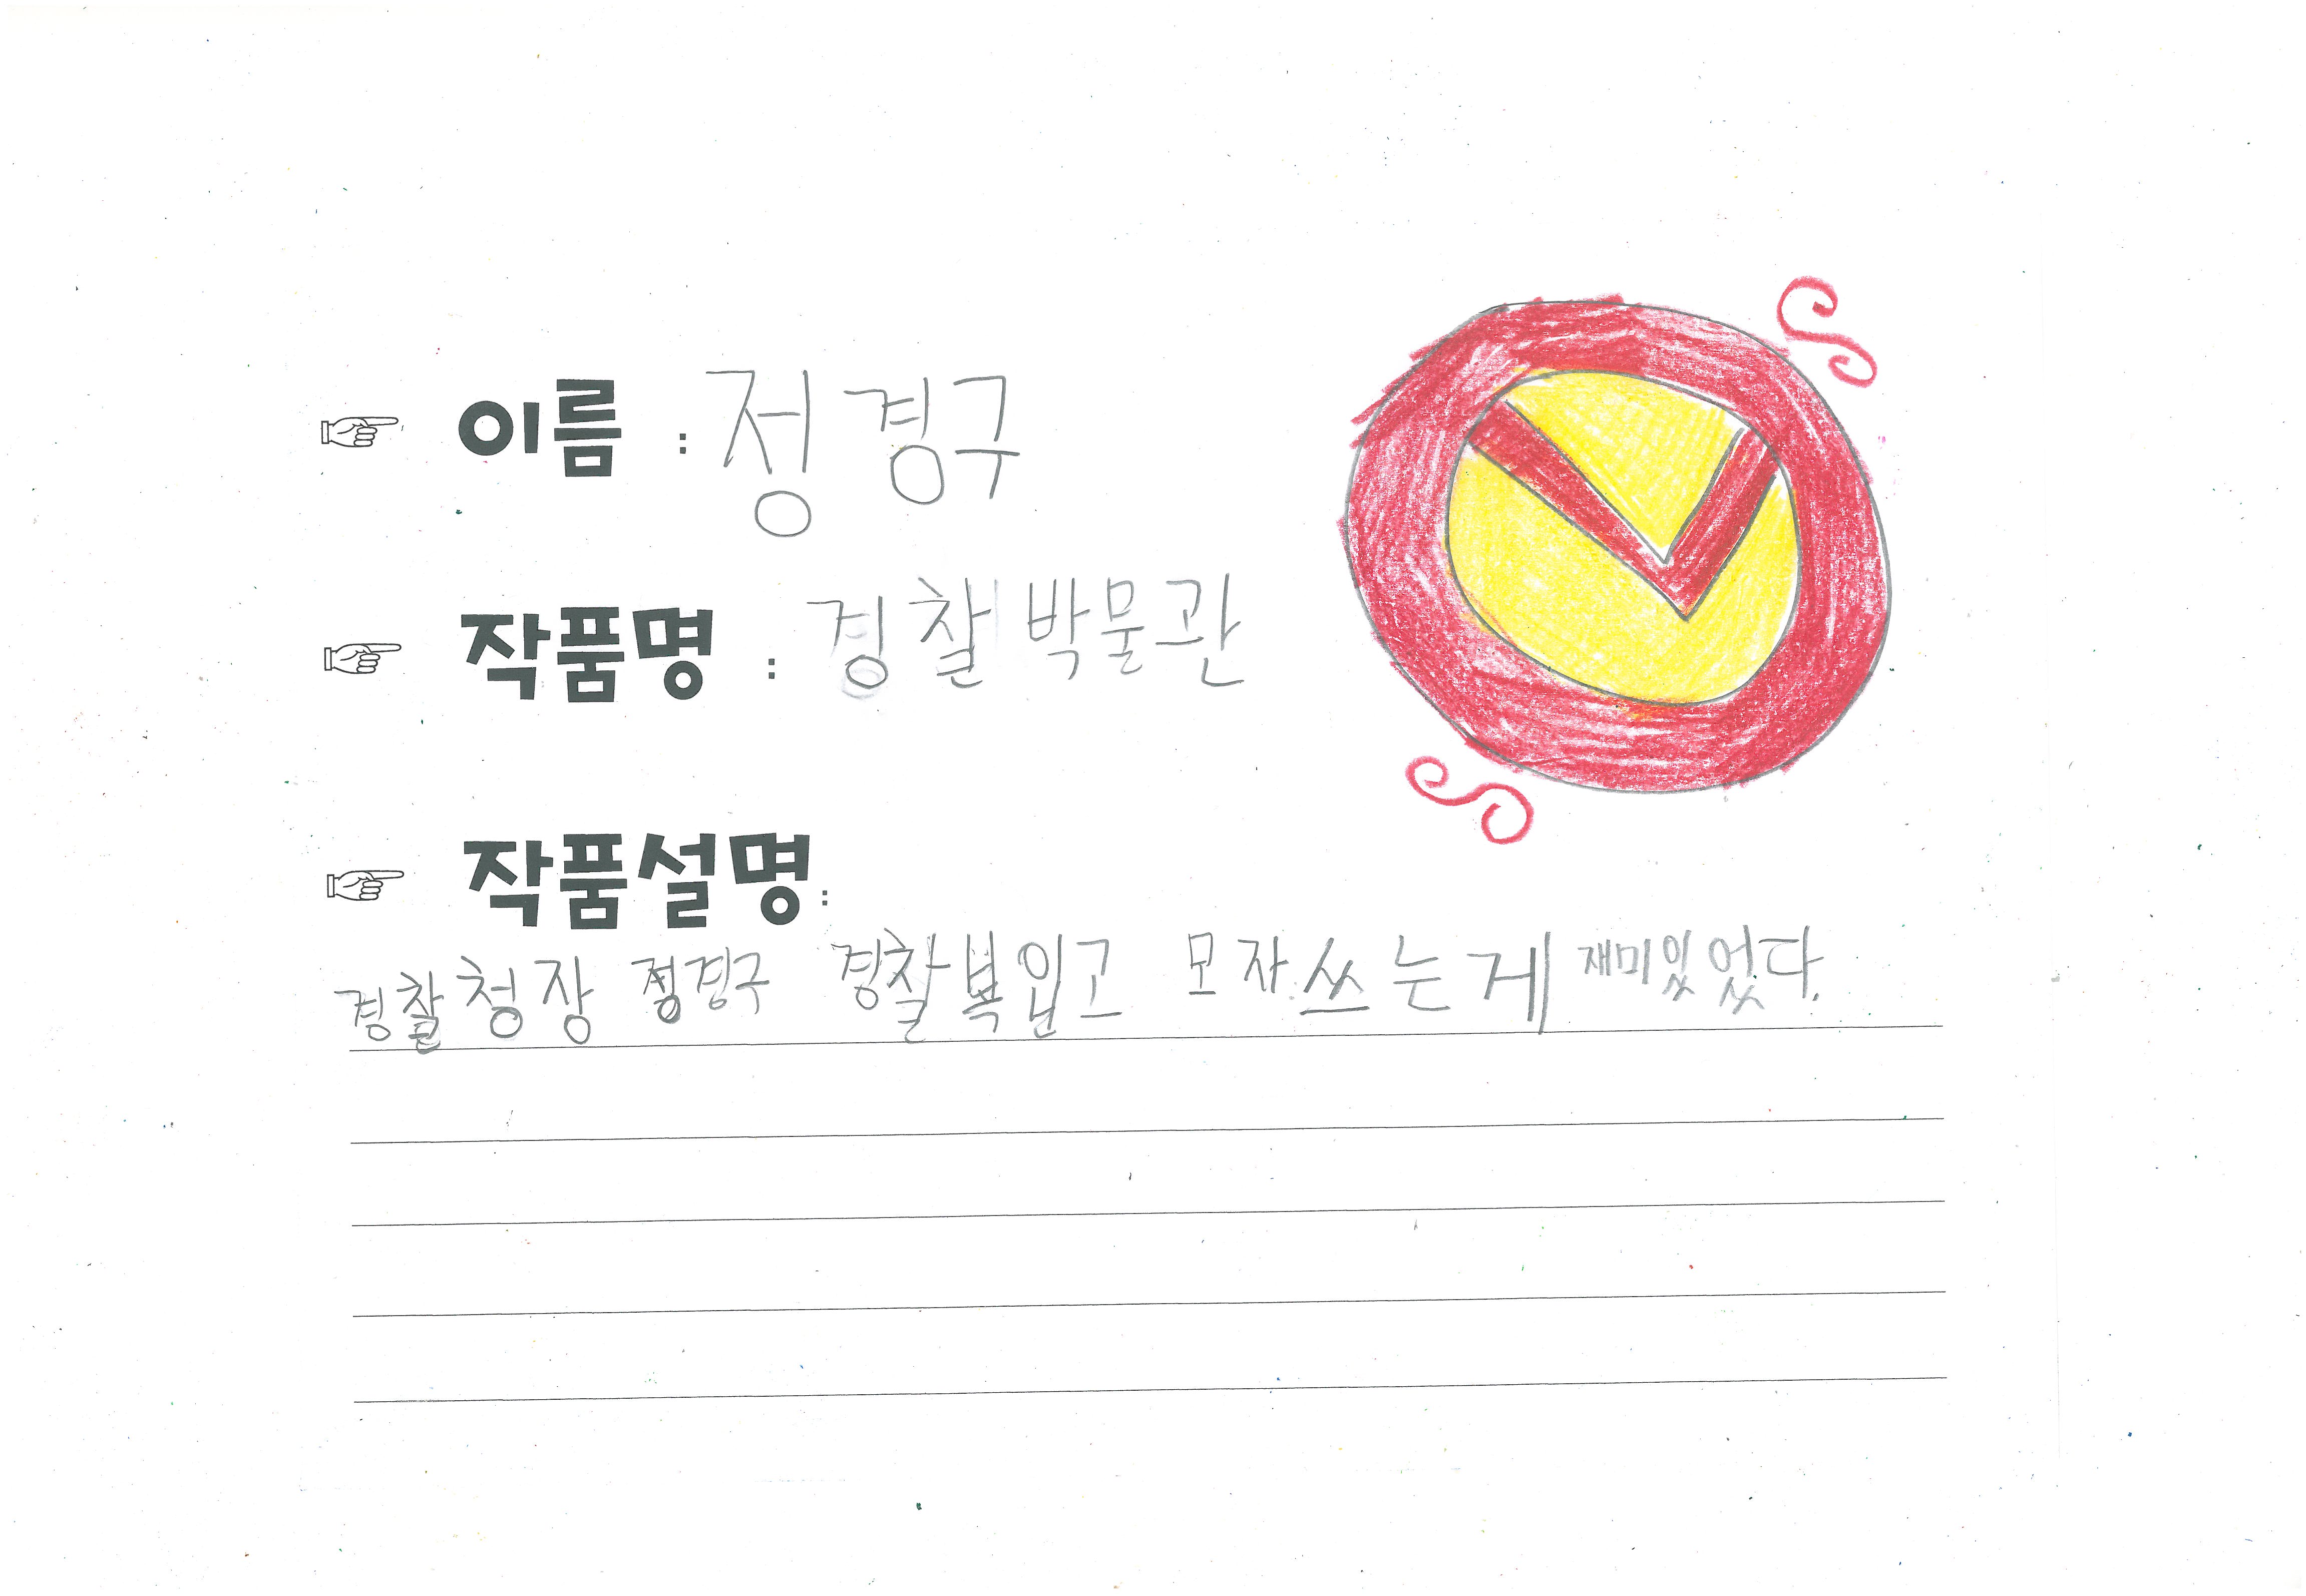 ☞ 이름 : 정경구
☞ 작품명 : 경찰박물관
☞ 작품설명:
경찰청장 정경구 경찰복입고 모자쓰는게 재미있었다.